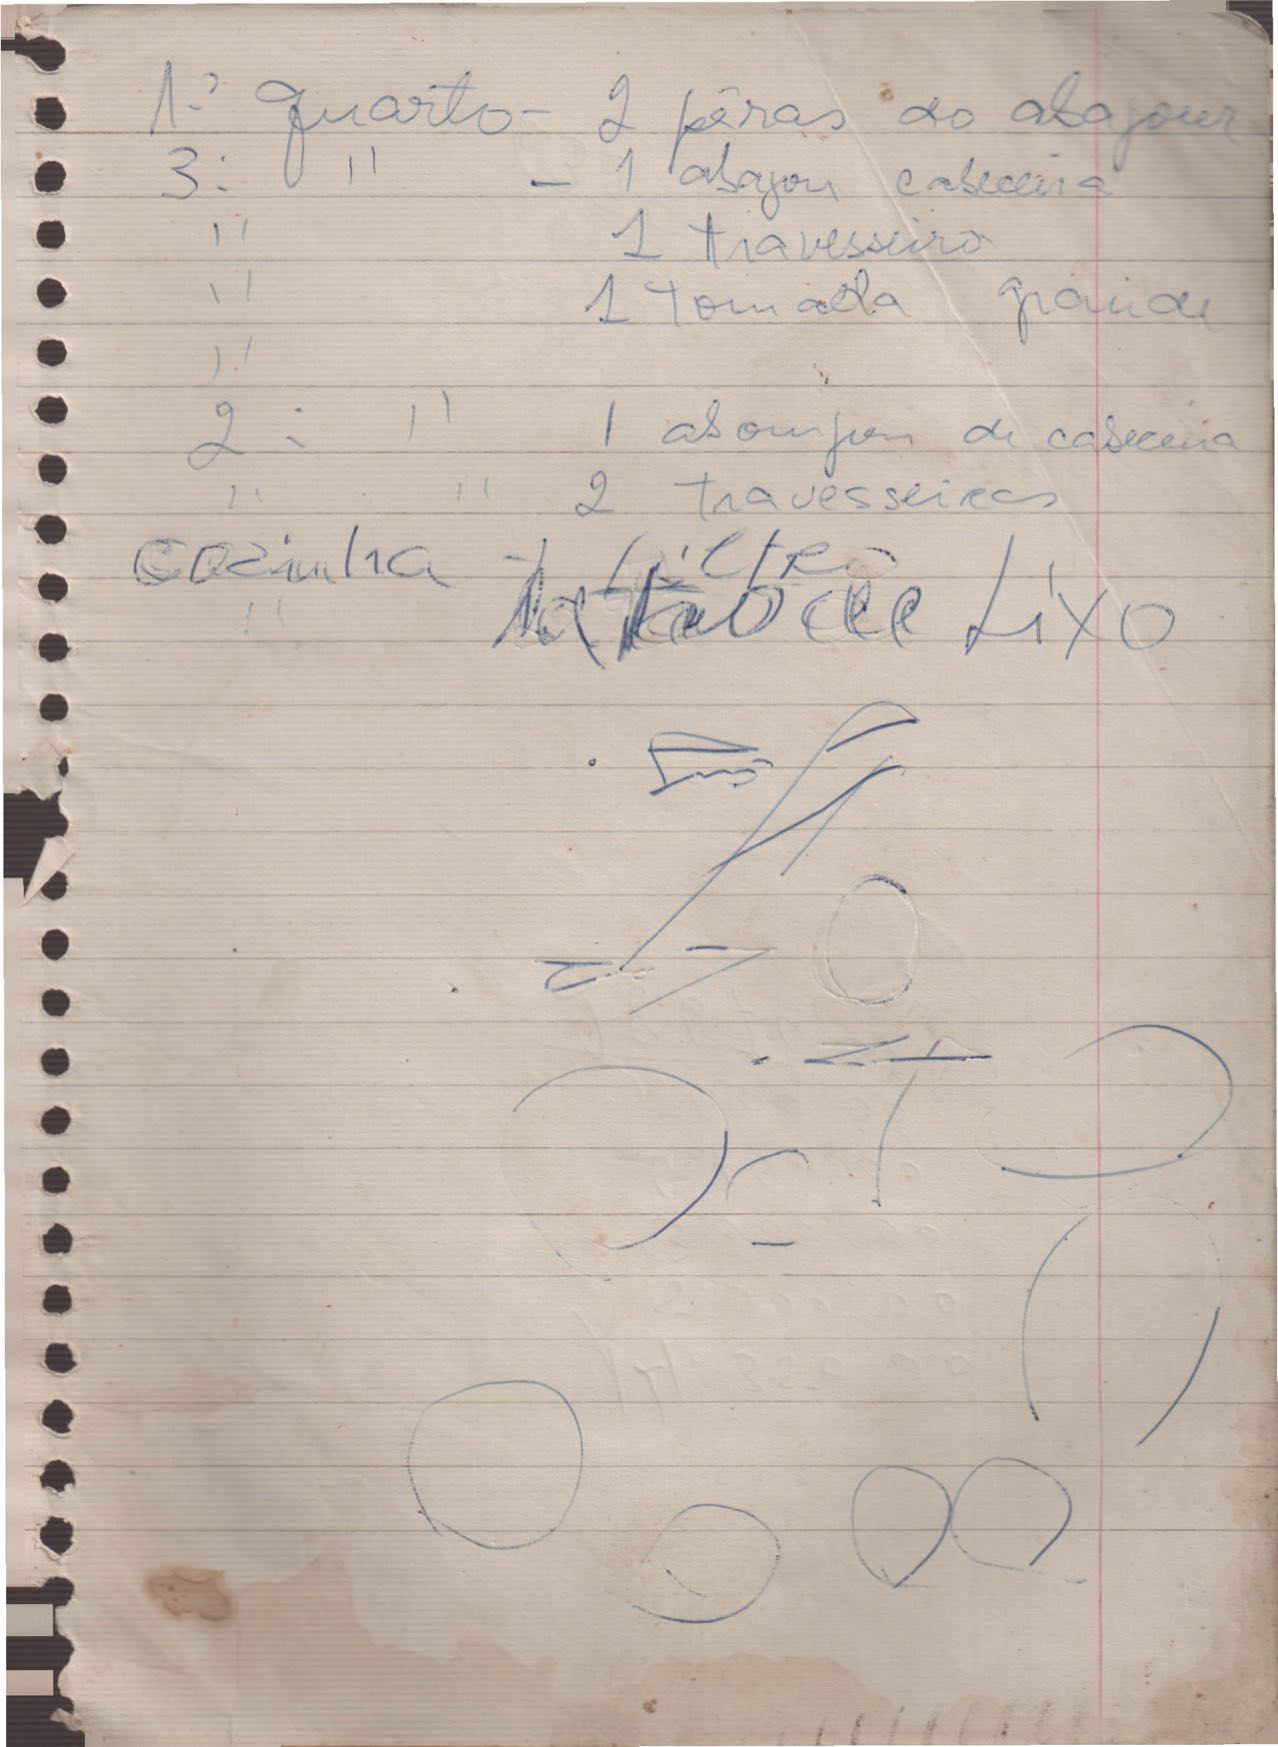 1.º quarto - 2 pêras do abajour
3: " - 1 abajou cabeceira
" 1 travesseiro
" 1 toualla grande
"
2: " 1 de cabeceira
" " 2 travesseiros
cozinha - 1 filtro
" lata de Lixo